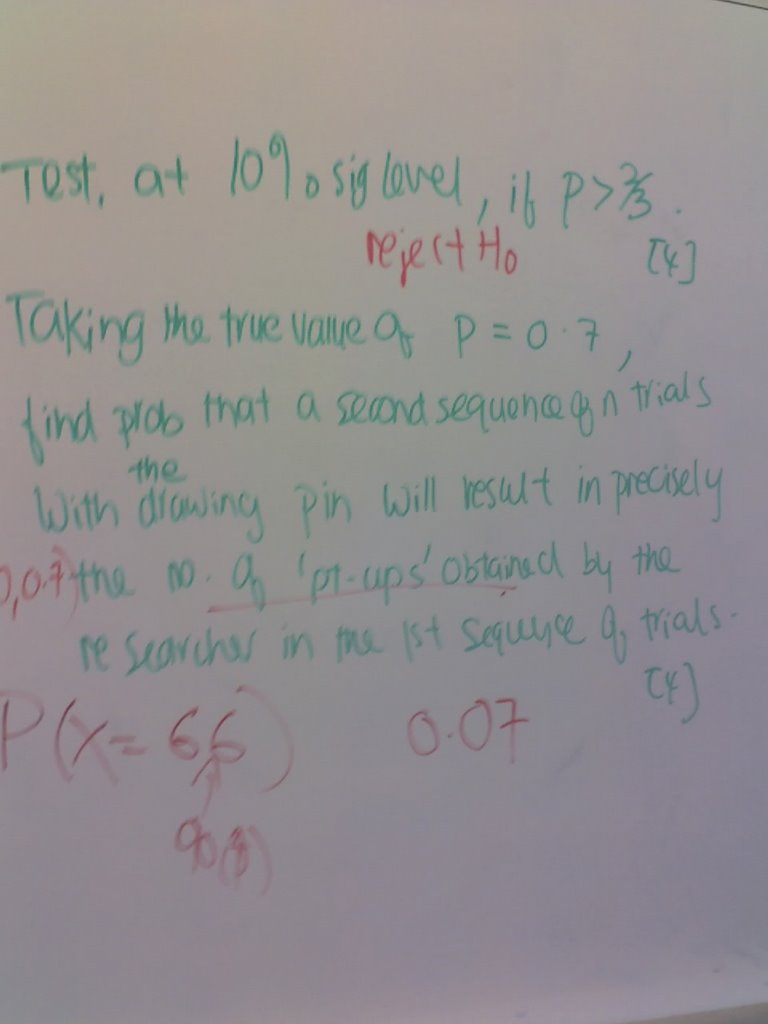 Test, at 10% sig level, if p > 2/3.
reject H₀ [4]
Taking the true value of p = 0.7,
find prob that a second sequence of n trials
the
With drawing pin will result in precisely
0,0.7) the no. of 'pt-ups' obtained by the
researcher in the 1st sequence of trials.
[4]
P(X = 66) 0.07